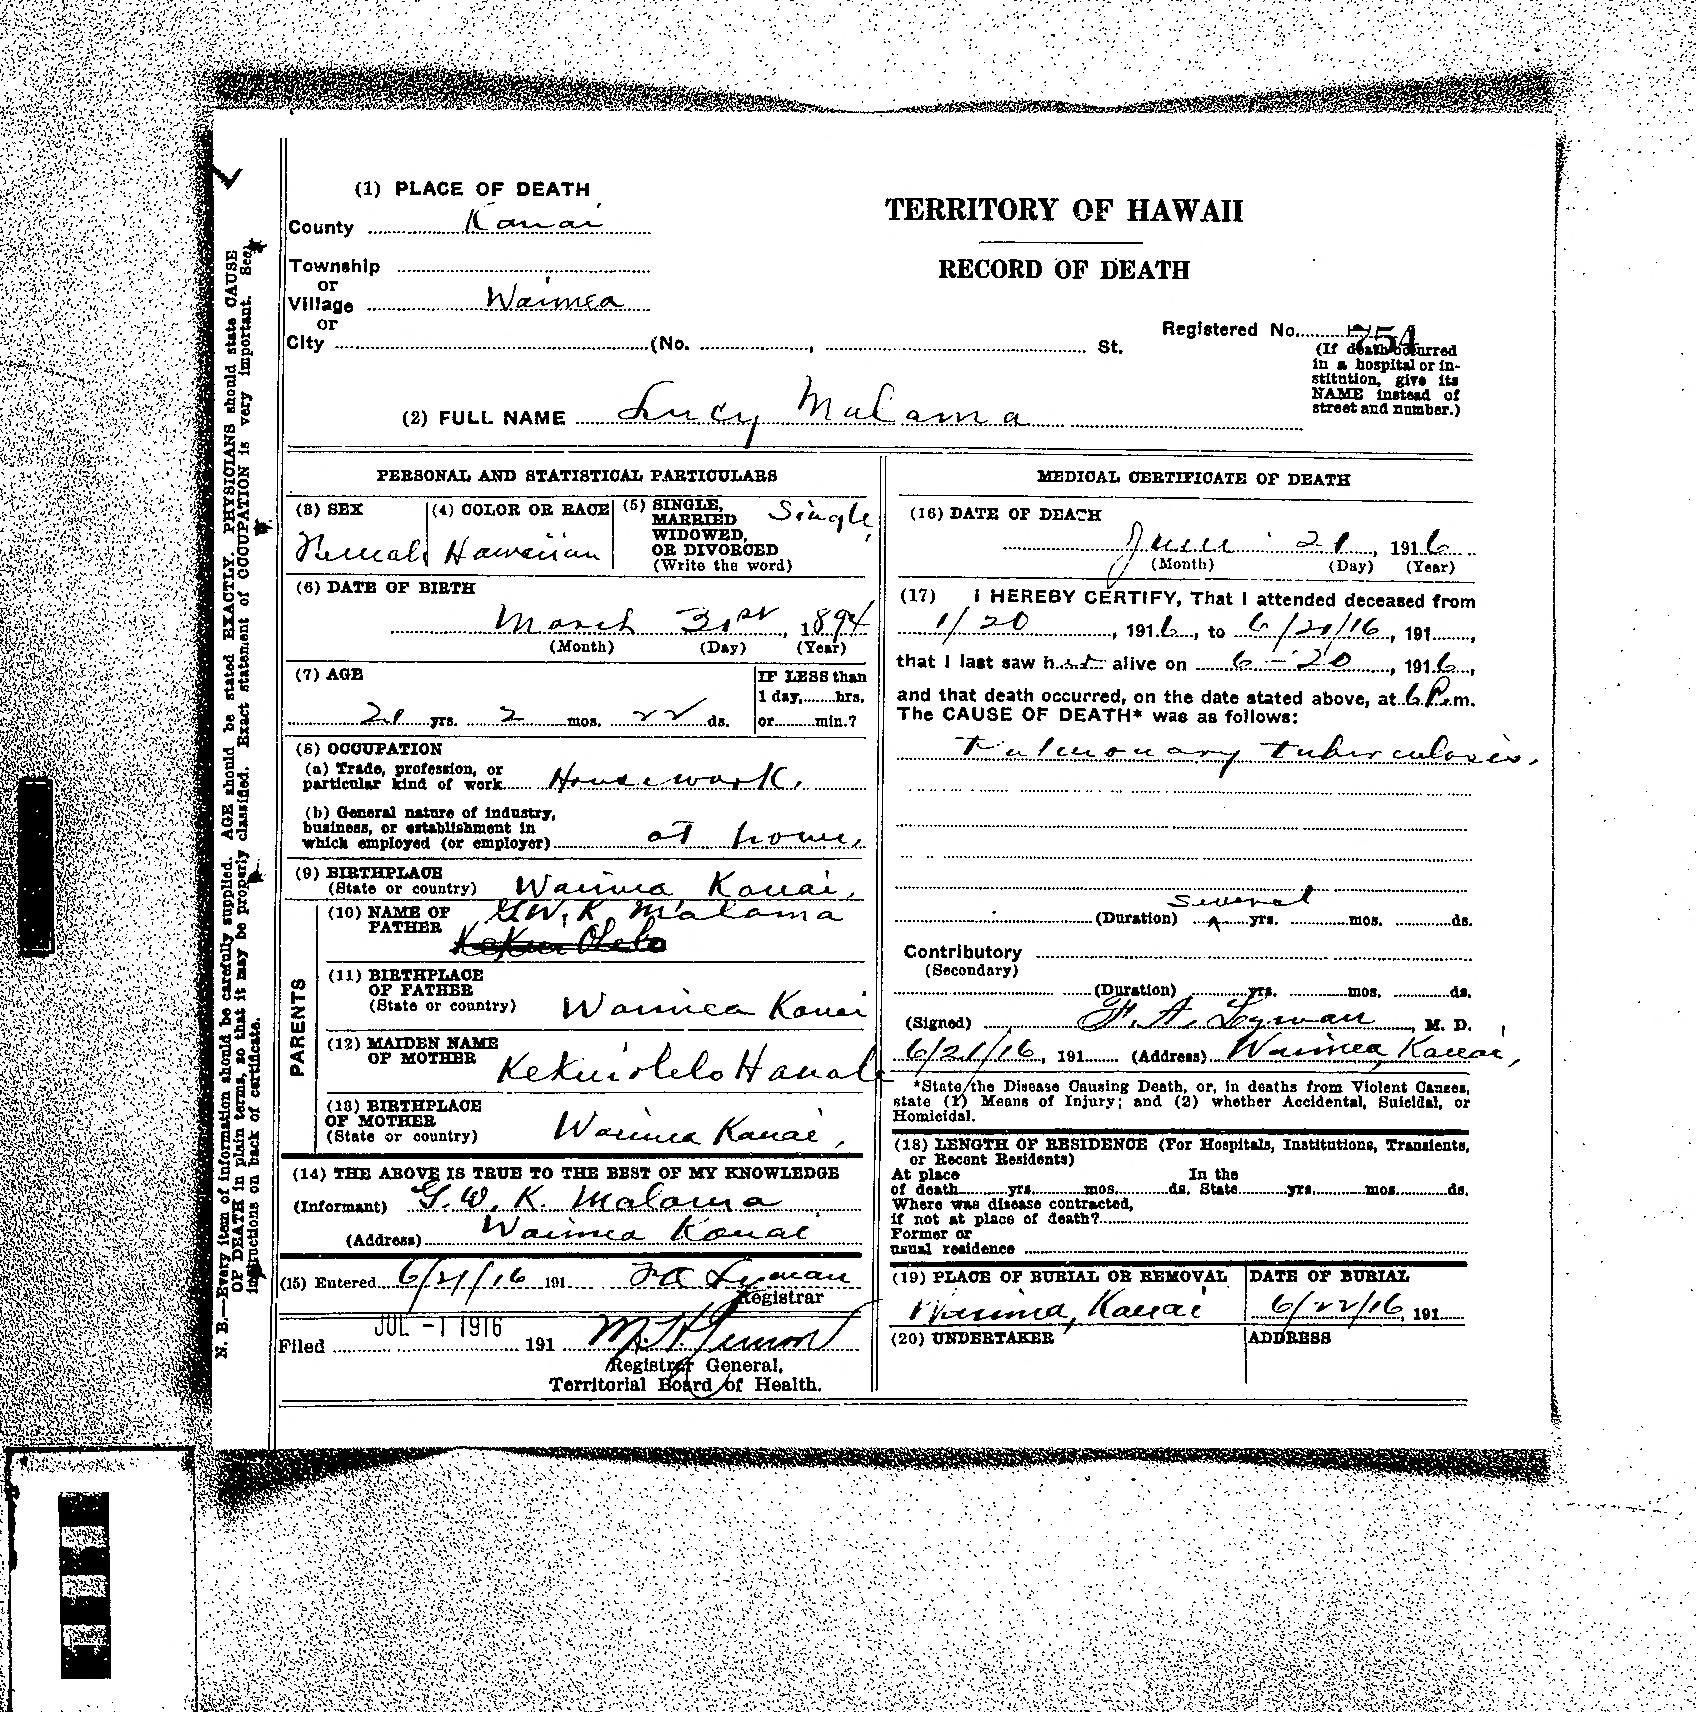 (1) PLACE OF DEATH
County Kauai
Township
or
Village Waimea
or
City (No. , St.
TERRITORY OF HAWAII
RECORD OF DEATH
Registered No. 754
(If death occurred
in a hospital or in-
stitution, give its
NAME instead of
street and number.)
(2) FULL NAME Lucy Malama
N. B.—Every item of information should be carefully supplied. AGE should be stated EXACTLY. PHYSICIANS should state CAUSE
OF DEATH in plain terms, so that it may be properly classified. Exact statement of OCCUPATION is very important. See
instructions on back of certificate.
PERSONAL AND STATISTICAL PARTICULARS
(3) SEX
Female
(4) COLOR OR RACE
Hawaiian
(5) SINGLE, Single
MARRIED
WIDOWED,
OR DIVORCED
(Write the word)
(6) DATE OF BIRTH
March 31st, 1894
(Month) (Day) (Year)
(7) AGE
21 yrs. 2 mos. 22 ds.
IF LESS than
1 day, hrs.
or min.?
(8) OCCUPATION
(a) Trade, profession, or
particular kind of work Housework.
(b) General nature of industry,
business, or establishment in
which employed (or employer) at home.
(9) BIRTHPLACE
(State or country) Waimea Kauai.
PARENTS
(10) NAME OF G.W.K. Malama
FATHER
(11) BIRTHPLACE
OF FATHER
(State or country) Waimea Kauai
(12) MAIDEN NAME
OF MOTHER Kekuiolelo
(13) BIRTHPLACE
OF MOTHER
(State or country) Waimea Kauai.
(14) THE ABOVE IS TRUE TO THE BEST OF MY KNOWLEDGE
(Informant) G. W. K. Malama
(Address) Waimea Kauai
(15) Entered 6/21/16 191 F A Lyman
Registrar
Filed JUL -1 1916 191
Registrar General,
Territorial Board of Health.
MEDICAL CERTIFICATE OF DEATH
(16) DATE OF DEATH
June 21, 1916
(Month) (Day) (Year)
(17) I HEREBY CERTIFY, That I attended deceased from
1/20, 1916, to 6/21/16, 191 ,
that I last saw her alive on 6-20, 1916,
and that death occurred, on the date stated above, at 6 P.m.
The CAUSE OF DEATH* was as follows:
Pulmonary tuberculosis.
Several
(Duration) ^ yrs. mos. ds.
Contributory
(Secondary)
(Duration) yrs. mos. ds.
(Signed) F. A. Lyman, M. D.
6/21/16, 191 (Address) Waimea, Kauai,
*State the Disease Causing Death, or, in deaths from Violent Causes,
state (1) Means of Injury; and (2) whether Accidental, Suicidal, or
Homicidal.
(18) LENGTH OF RESIDENCE (For Hospitals, Institutions, Transients,
or Recent Residents)
At place In the
of death yrs. mos. ds. State yrs. mos. ds.
Where was disease contracted,
if not at place of death?
Former or
usual residence
(19) PLACE OF BURIAL OR REMOVAL
Waimea, Kauai
DATE OF BURIAL
6/22/16, 191
(20) UNDERTAKER
ADDRESS